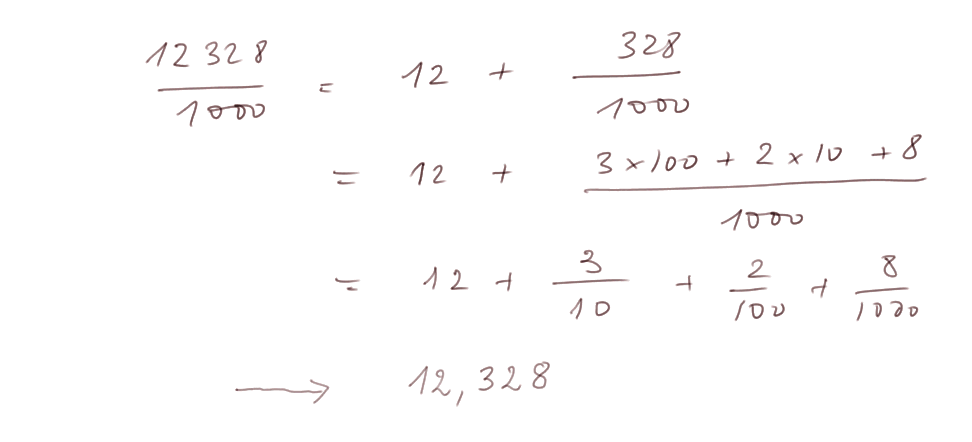 12 328 / 1000 = 12 + 328 / 1000
= 12 + (3 × 100 + 2 × 10 + 8) / 1000
= 12 + 3/10 + 2/100 + 8/1000
→ 12,328